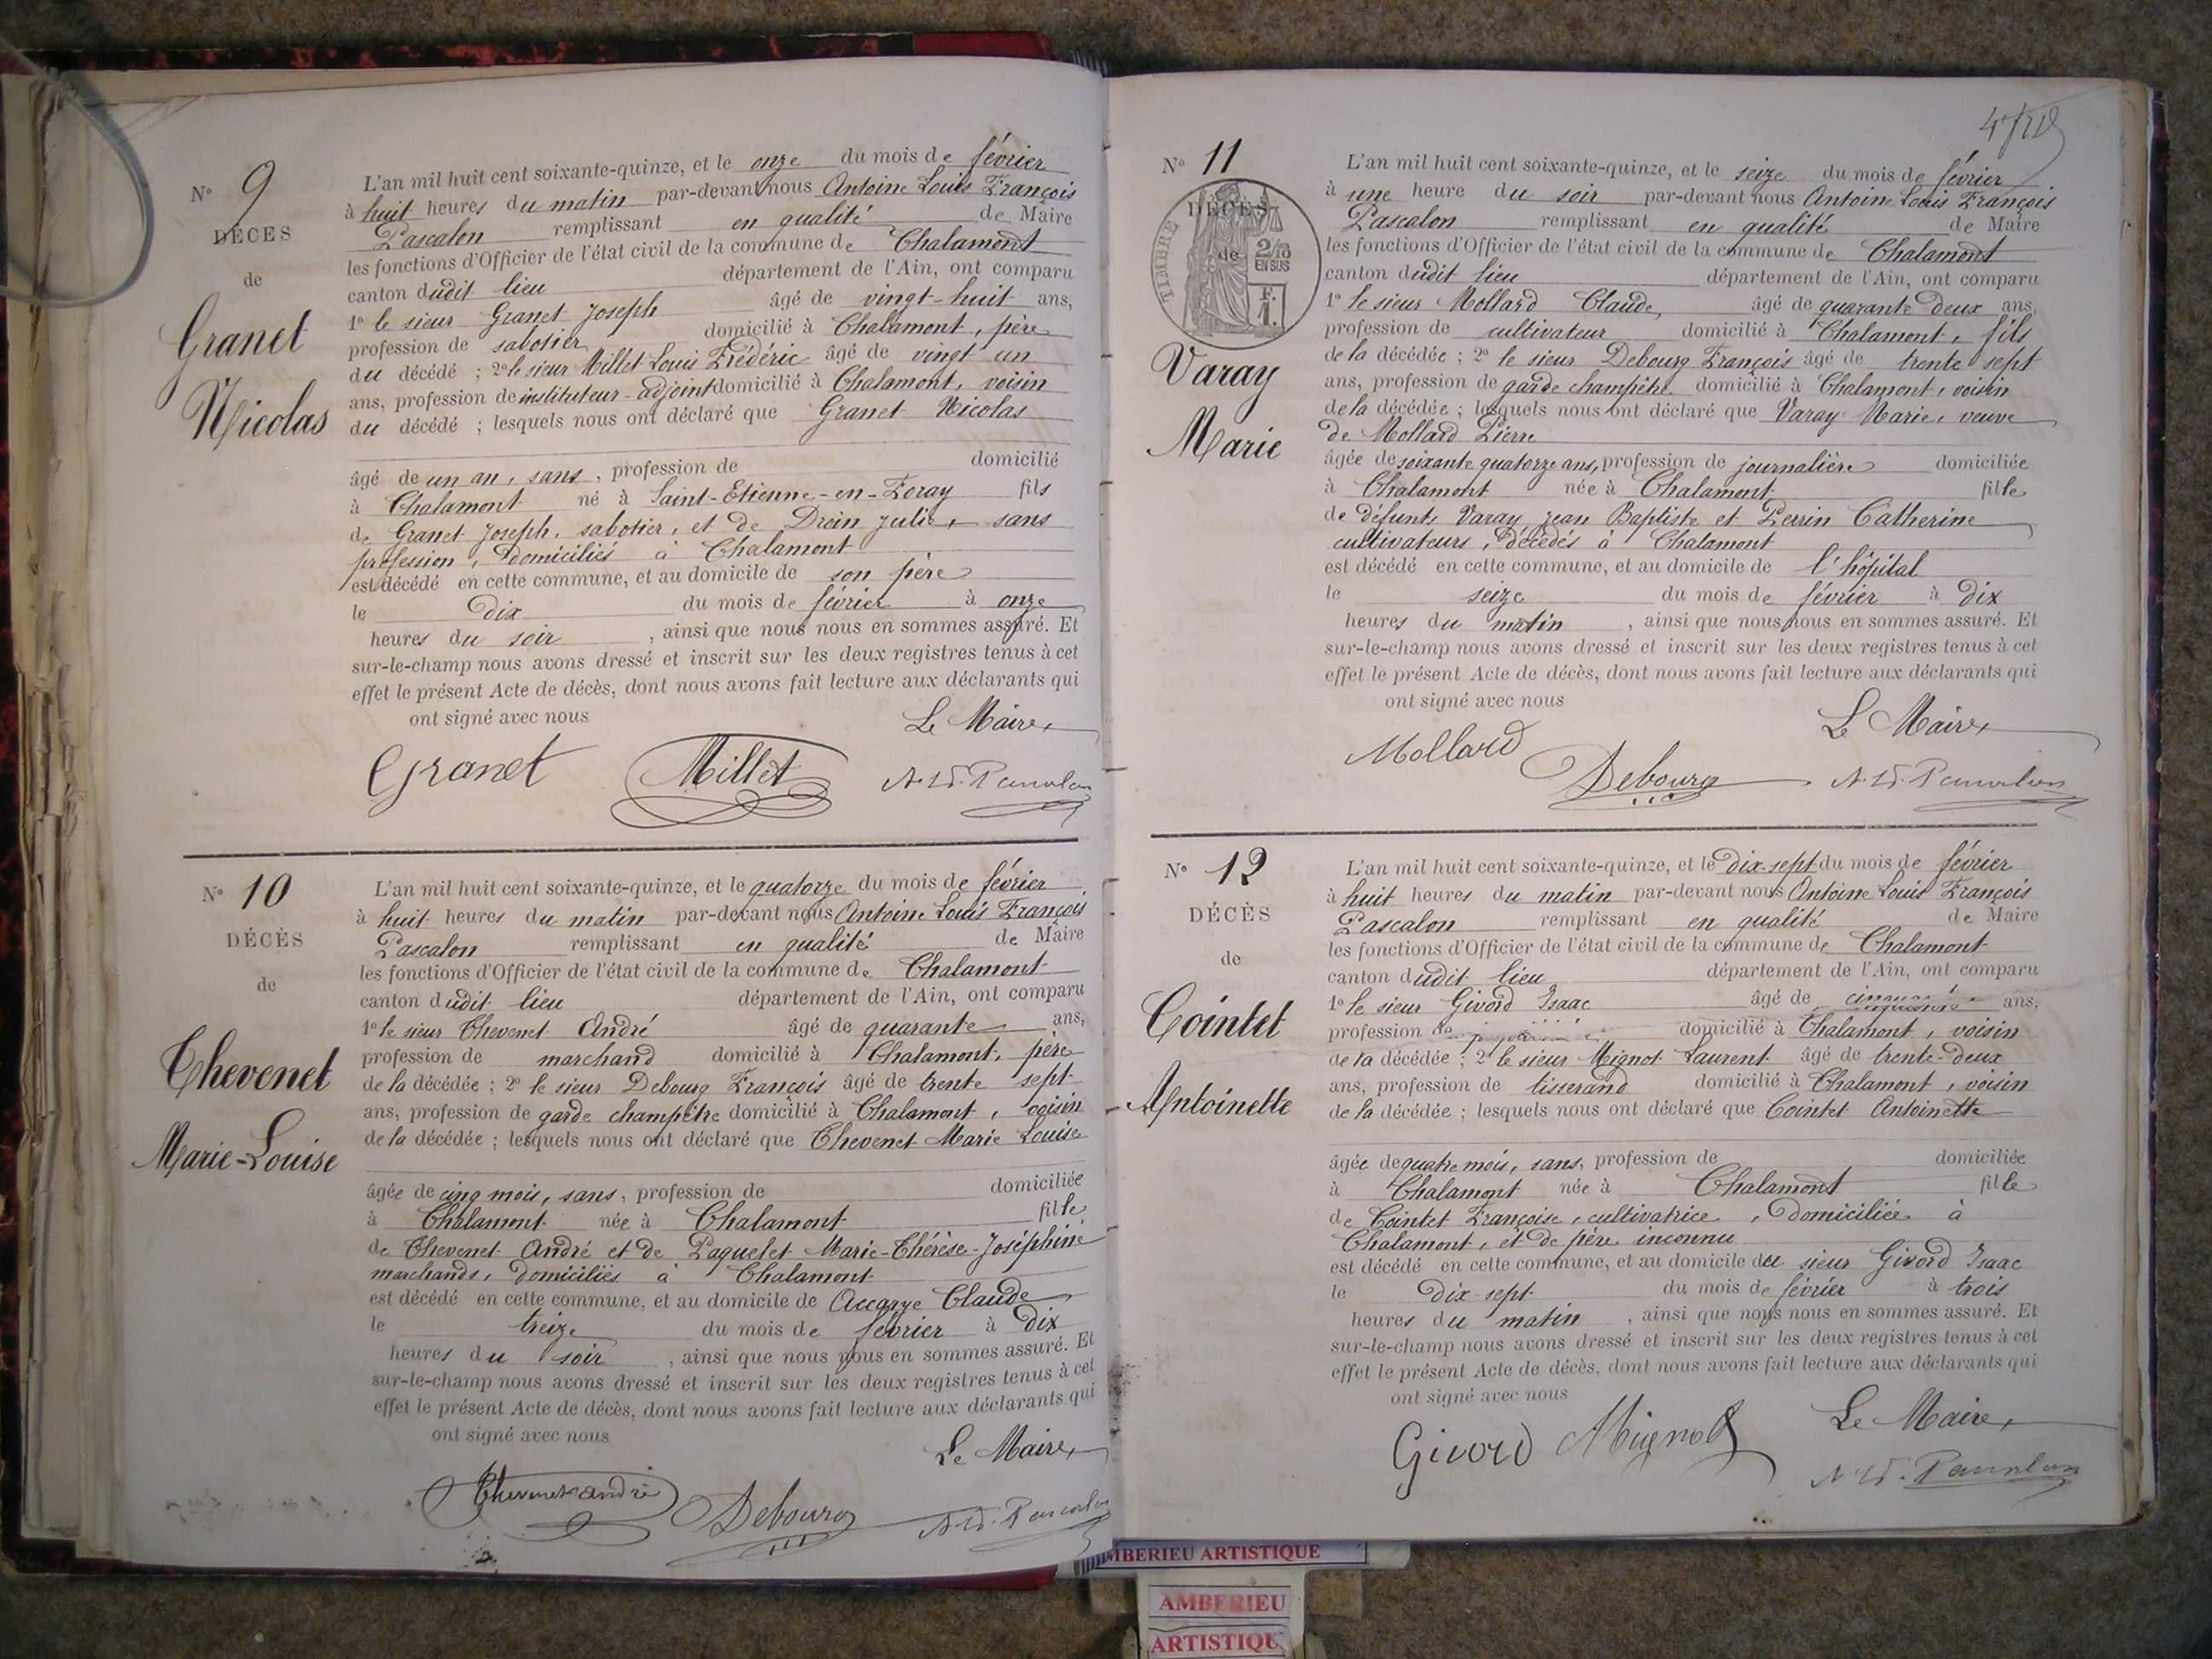 N° 9
DÉCÈS
de
Granet
Nicolas
L'an mil huit cent soixante-quinze, et le onze du mois de février
à huit heures du matin par-devant nous Antoine Louis François
Pascalon remplissant en qualité de Maire
les fonctions d'Officier de l'état civil de la commune de Chalamont
canton dudit lieu département de l'Ain, ont comparu
1° le sieur Granet Joseph âgé de vingt-huit ans,
profession de sabotier domicilié à Chalamont, père
du décédé ; 2° le sieur Millet Louis Frédéric âgé de vingt un
ans, profession de instituteur-adjoint domicilié à Chalamont, voisin
du décédé ; lesquels nous ont déclaré que Granet Nicolas
âgé de un an, sans, profession de domicilié
à Chalamont né à Saint-Etienne-en-Foray fils
de Granet Joseph, sabotier, et de Drein Julie, sans
profession, domiciliés à Chalamont
est décédé en cette commune, et au domicile de son père
le dix du mois de février à onze
heures du soir , ainsi que nous nous en sommes assuré. Et
sur-le-champ nous avons dressé et inscrit sur les deux registres tenus à cet
effet le présent Acte de décès, dont nous avons fait lecture aux déclarants qui
ont signé avec nous
Le Maire,
Granet Millet A. Ls. F. Pascalon
N° 10
DÉCÈS
de
Chevenet
Marie-Louise
L'an mil huit cent soixante-quinze, et le quatorze du mois de février
à huit heures du matin par-devant nous Antoine Louis François
Pascalon remplissant en qualité de Maire
les fonctions d'Officier de l'état civil de la commune de Chalamont
canton dudit lieu département de l'Ain, ont comparu
1° le sieur Chevenet André âgé de quarante ans,
profession de marchand domicilié à Chalamont, père
de la décédée ; 2° le sieur Debourg François âgé de trente sept
ans, profession de garde champêtre domicilié à Chalamont, voisin
de la décédée ; lesquels nous ont déclaré que Chevenet Marie Louise
âgée de cinq mois, sans, profession de domiciliée
à Chalamont née à Chalamont fille
de Chevenet André et de Paquelet Marie-Thérèse-Joséphine
marchands, domiciliés à Chalamont
est décédé en cette commune, et au domicile de Accarye Claude
le treize du mois de février à dix
heures du soir , ainsi que nous nous en sommes assuré. Et
sur-le-champ nous avons dressé et inscrit sur les deux registres tenus à cet
effet le présent Acte de décès, dont nous avons fait lecture aux déclarants qui
ont signé avec nous
Le Maire,
Chevenet andré Debourg Pascalon
N° 11
TIMBRE
2/10
EN SUS
DÉCÈS
de
Varay
Marie
L'an mil huit cent soixante-quinze, et le seize du mois de février
à une heure du soir par-devant nous Antoine Louis François
Pascalon remplissant en qualité de Maire
les fonctions d'Officier de l'état civil de la commune de Chalamont
canton dudit lieu département de l'Ain, ont comparu
1° le sieur Mollard Claude, âgé de quarante deux ans,
profession de cultivateur domicilié à Chalamont, fils
de la décédée ; 2° le sieur Debourg François âgé de trente sept
ans, profession de garde champêtre domicilié à Chalamont, voisin
de la décédée ; lesquels nous ont déclaré que Varay Marie, veuve
de Mollard Pierre
âgée de soixante quatorze ans, profession de journalière domiciliée
à Chalamont née à Chalamont fille
de défunts Varay Jean Baptiste et Perrin Catherine
cultivateurs, décédés à Chalamont
est décédé en cette commune, et au domicile de l'hôpital
le seize du mois de février à dix
heures du matin , ainsi que nous nous en sommes assuré. Et
sur-le-champ nous avons dressé et inscrit sur les deux registres tenus à cet
effet le présent Acte de décès, dont nous avons fait lecture aux déclarants qui
ont signé avec nous
Le Maire,
Mollard Debourg Pascalon
N° 12
DÉCÈS
de
Cointet
Antoinette
L'an mil huit cent soixante-quinze, et le dix-sept du mois de février
à huit heures du matin par-devant nous Antoine Louis François
Pascalon remplissant en qualité de Maire
les fonctions d'Officier de l'état civil de la commune de Chalamont
canton dudit lieu département de l'Ain, ont comparu
1° le sieur Givord Isaac âgé de ans,
profession de domicilié à Chalamont, voisin
de la décédée ; 2° le sieur Mignot Laurent âgé de trente-deux
ans, profession de tisserand domicilié à Chalamont, voisin
de la décédée ; lesquels nous ont déclaré que Cointet Antoinette
âgée de quatre mois, sans, profession de domiciliée
à Chalamont née à Chalamont fille
de Cointet Françoise, cultivatrice, domiciliée à
Chalamont, et de père inconnu
est décédé en cette commune, et au domicile du sieur Givord Isaac
le dix-sept du mois de février à trois
heures du matin , ainsi que nous nous en sommes assuré. Et
sur-le-champ nous avons dressé et inscrit sur les deux registres tenus à cet
effet le présent Acte de décès, dont nous avons fait lecture aux déclarants qui
ont signé avec nous
Le Maire,
Givord Mignot Pascalon
MBERIEU ARTISTIQUE
AMBERIEU
ARTISTIQU